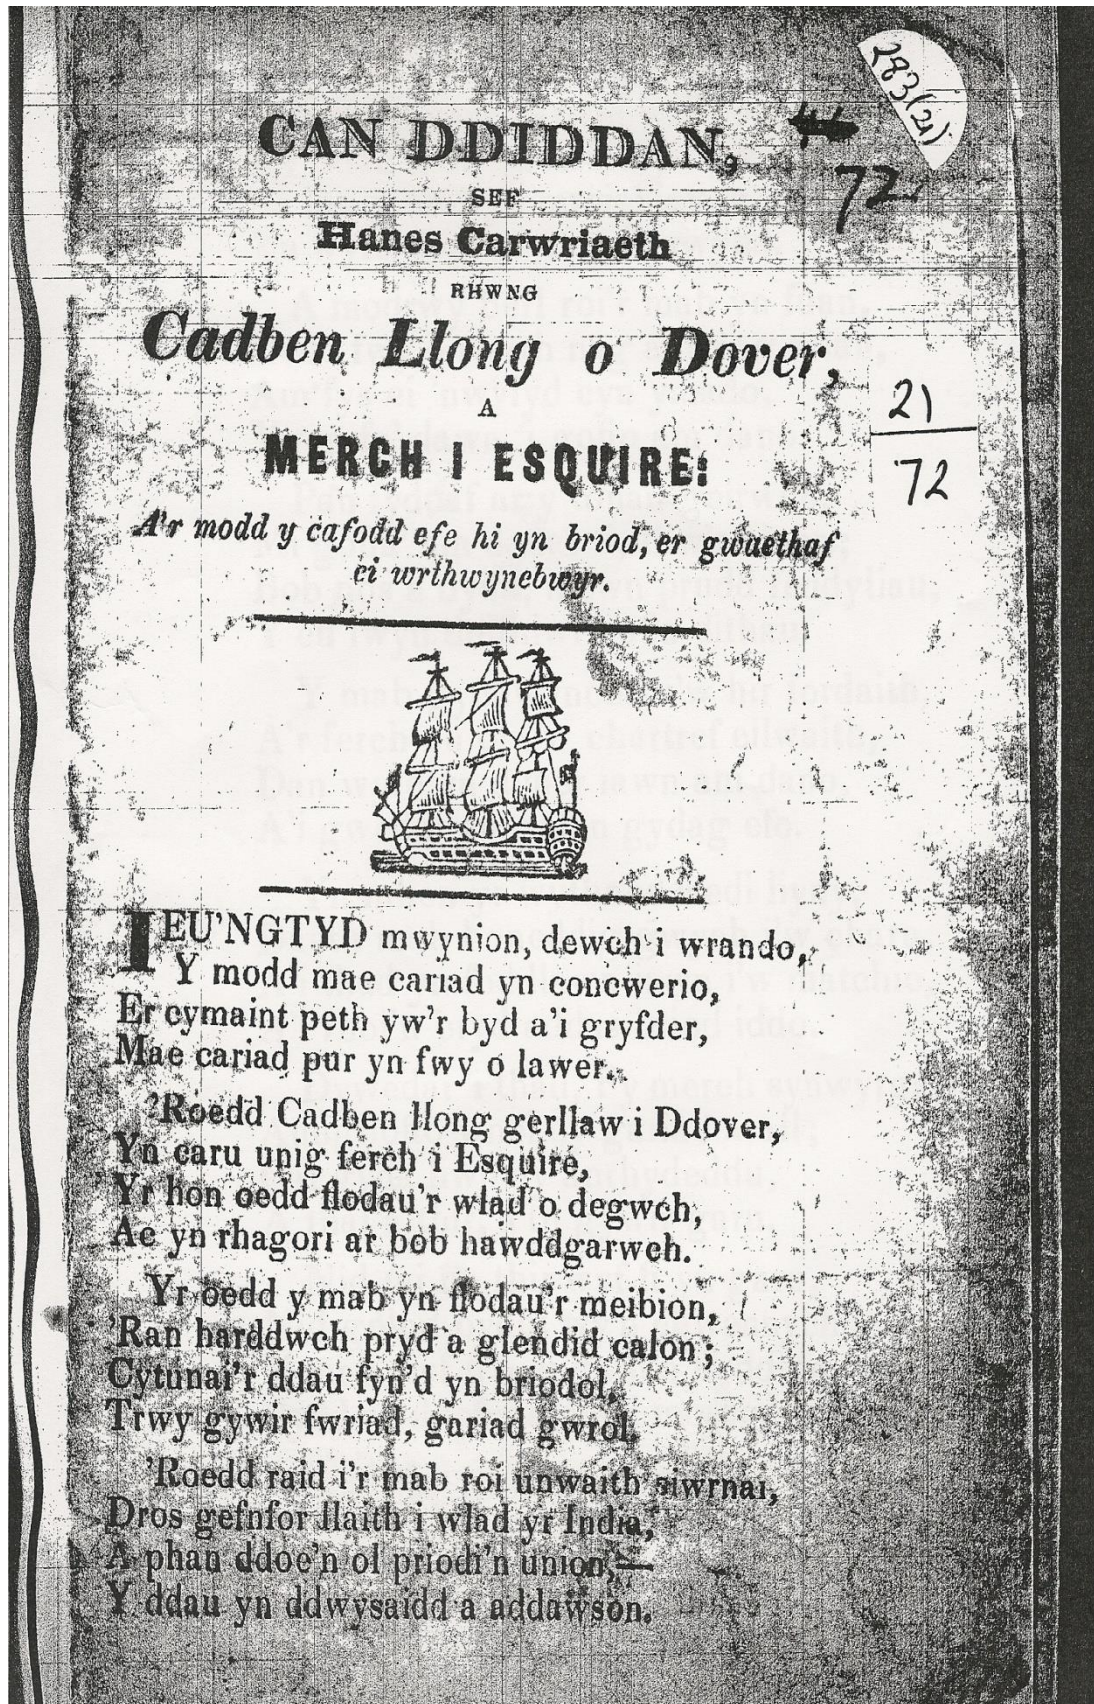 283(21)
72
CAN DDIDDAN,
SEF
Hanes Carwriaeth
RHWNG
Cadben Llong o Dover,
A
MERCH I ESQUIRE:
21
72
A'r modd y cafodd efe hi yn briod, er gwaethaf
ei wrthwynebwyr.
IEU'NGTYD mwynion, dewch i wrando,
Y modd mae cariad yn concwerio,
Er cymaint peth yw'r byd a'i gryfder,
Mae cariad pur yn fwy o lawer.
'Roedd Cadben llong gerllaw i Ddover,
Yn caru unig ferch i Esquire,
Yr hon oedd flodau'r wlad o degwch,
Ae yn rhagori ar bob hawddgarwch.
Yr oedd y mab yn flodau'r meibion,
'Ran harddwch pryd a glendid calon;
Cytunai'r ddau fyn'd yn briodol,
Trwy gywir fwriad, gariad gwrol.
'Roedd raid i'r mab roi unwaith siwrnai,
Dros gefnfor llaith i wlad yr India,
A phan ddoe'n ol priodi'n union,—
Y ddau yn ddwysaidd a addawson.